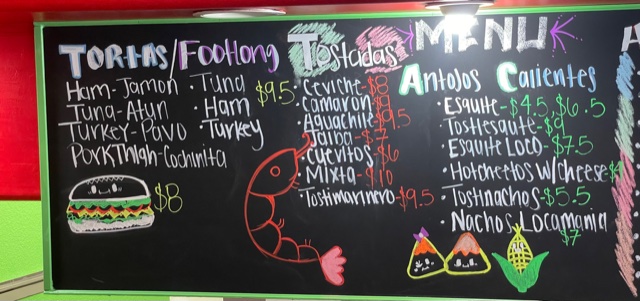 MENU
TORTAS/FOOtlong
Ham-Jamon
Tuna-Atun
Turkey-Pavo
PorkThigh-Cochinita
$8
· Tuna
· Ham
· Turkey
$9.5
Tostadas
· Ceviche-$8
· Camaron $9
· Aguachile $9.5
· Jaiba-$7
· Cuevitos-$6
· Mixta-$10
· Tostimarinero-$9.5
Antojos Calientes
· Esquite-$4.5, $6.5
· Tostiesquite-$9
· Esquite Loco-$7.5
· Hotcheetos w/cheese $4
· Tostinachos-$5.5
· Nachos Locamania
$7